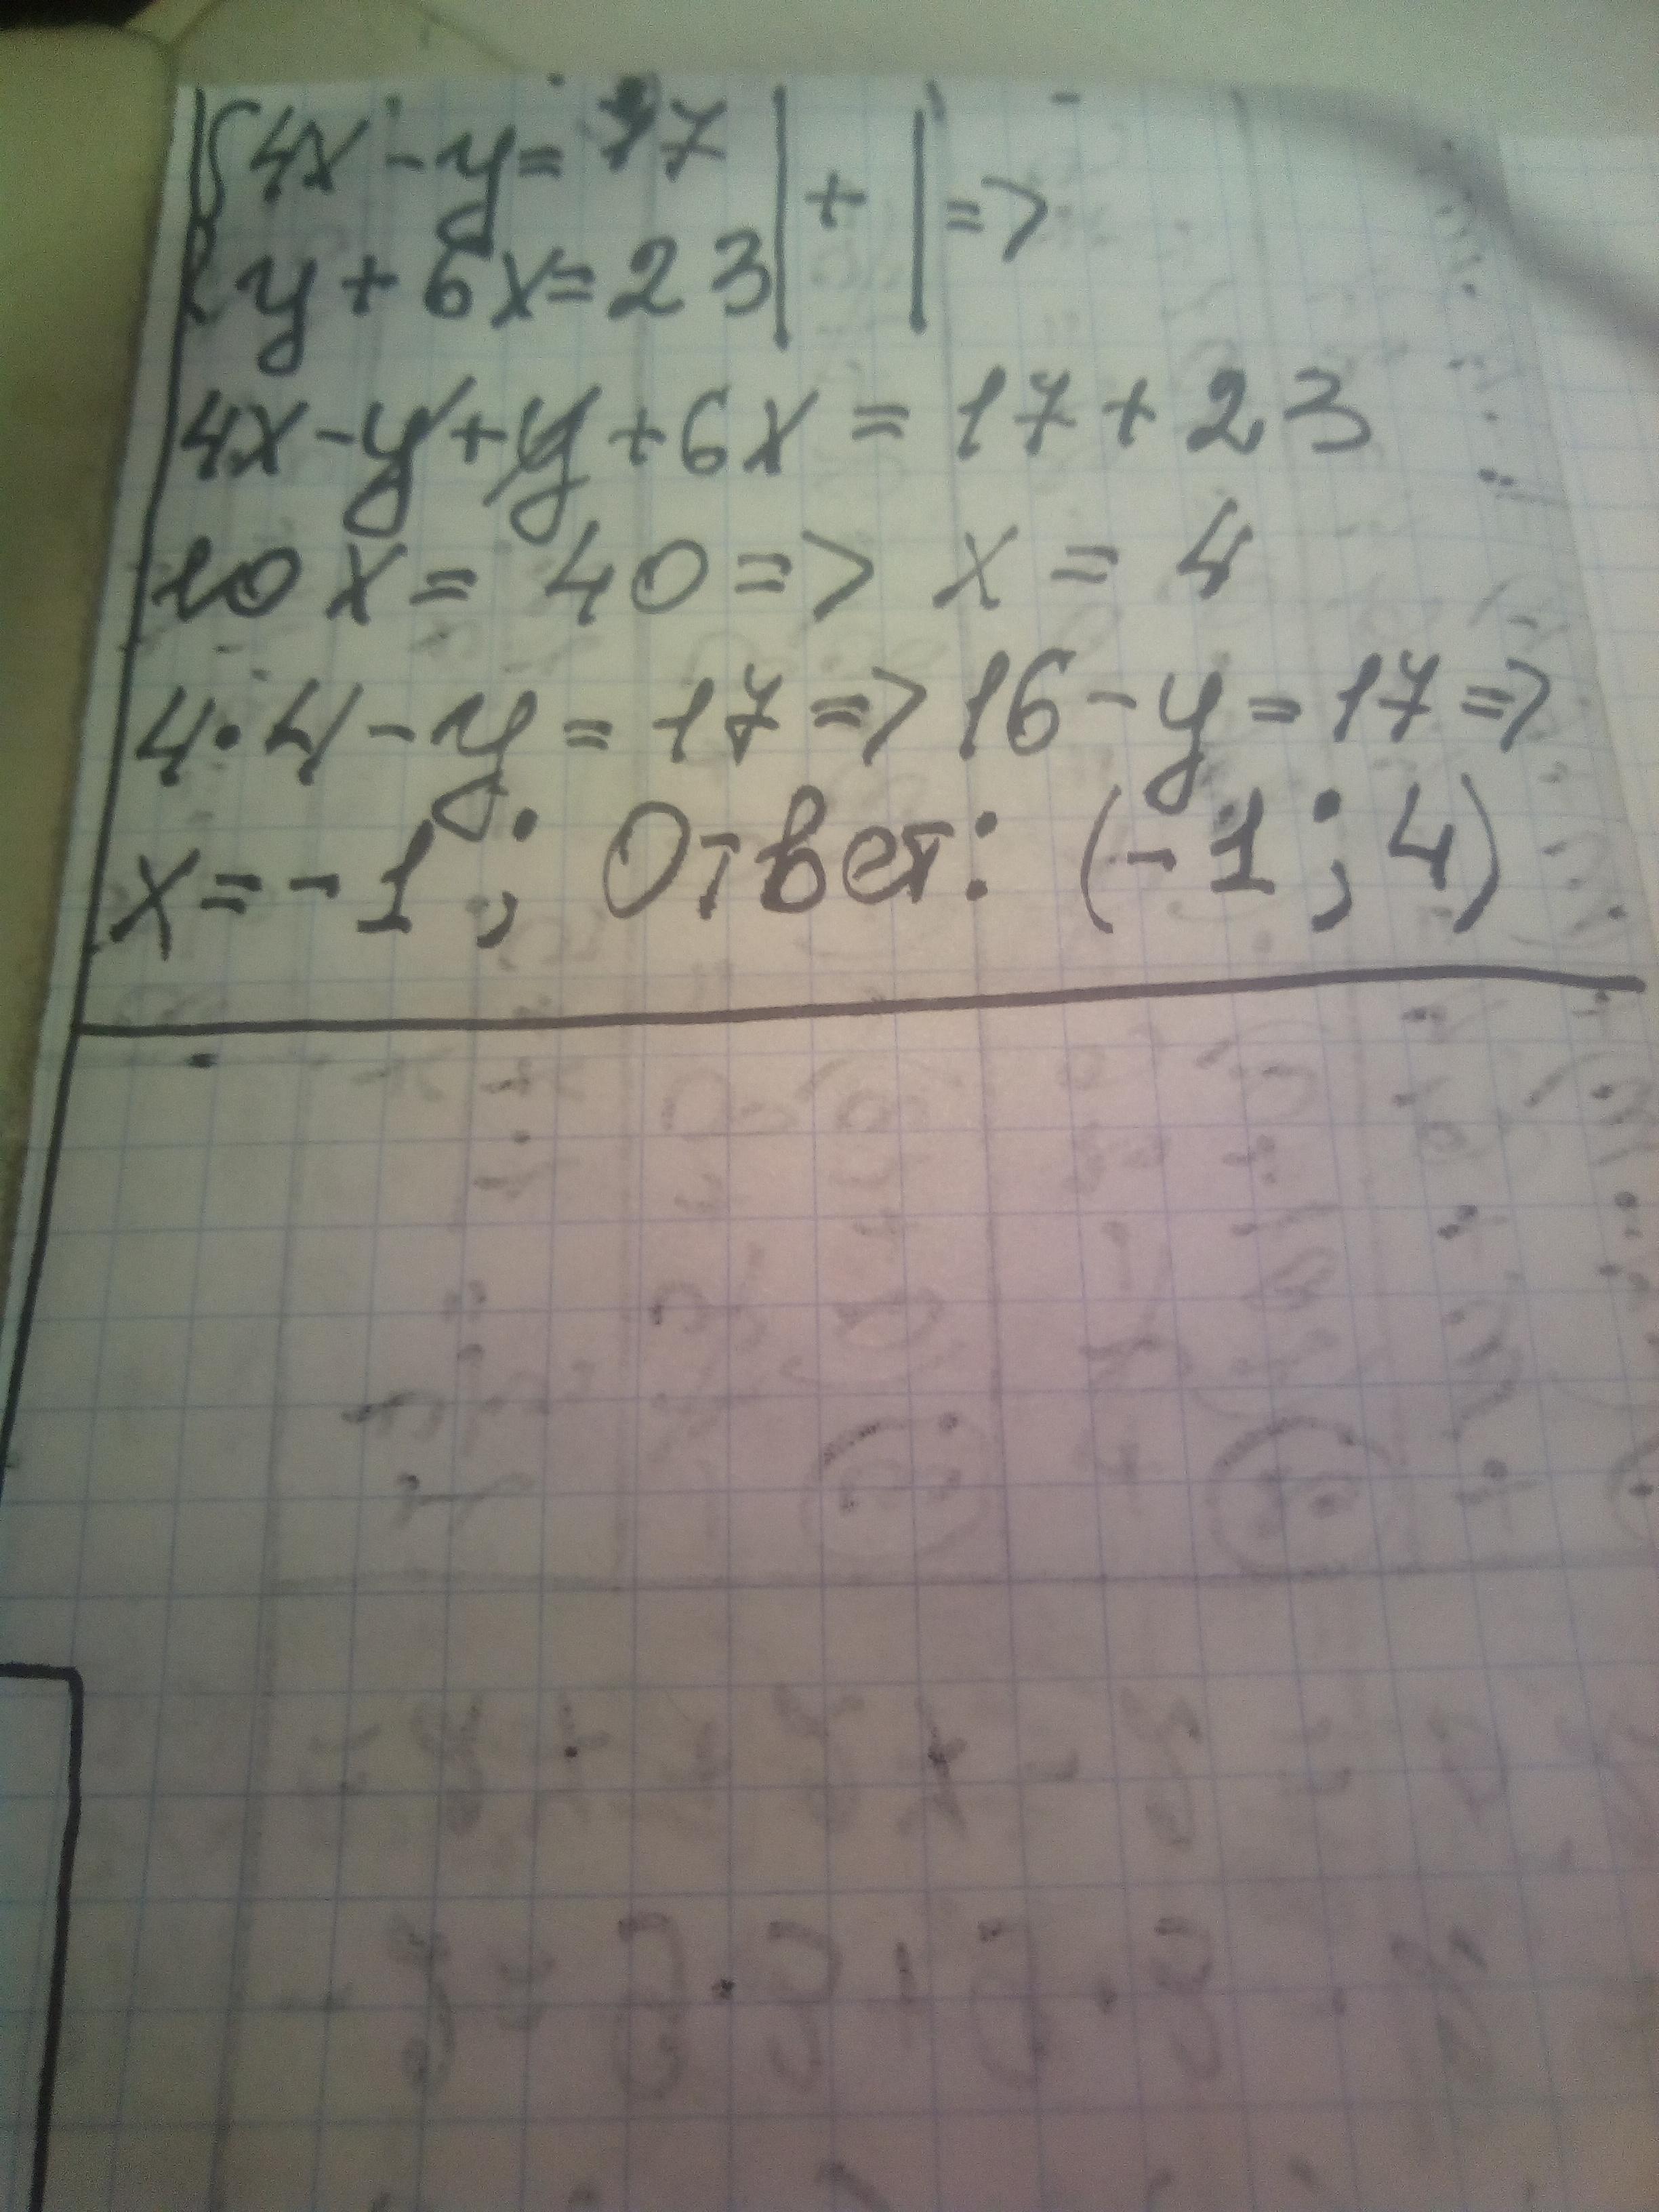 {4x - y = 17 | + | =>
{y + 6x = 23
4x - y + y + 6x = 17 + 23
10x = 40 => x = 4
4·4 - y = 17 => 16 - y = 17 =>
x = -1; Ответ: (-1; 4)